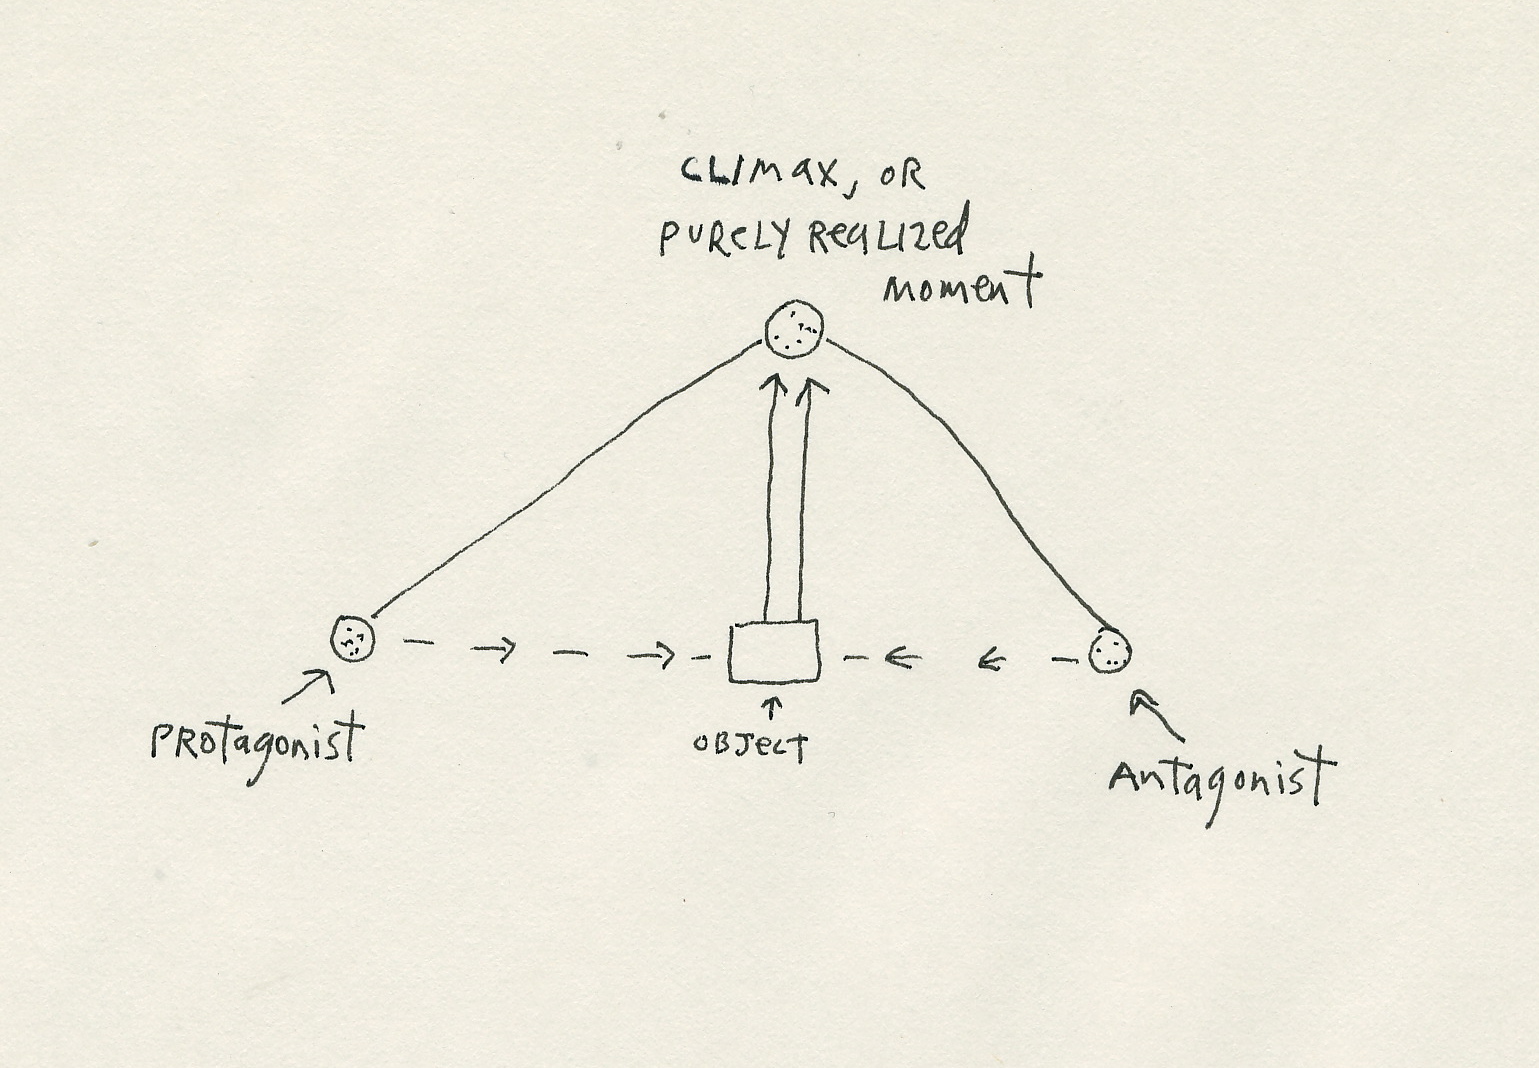 CLIMAX, OR
PURELY REALIZED
MOMENT
PROTAGONIST
OBJECT
ANTAGONIST